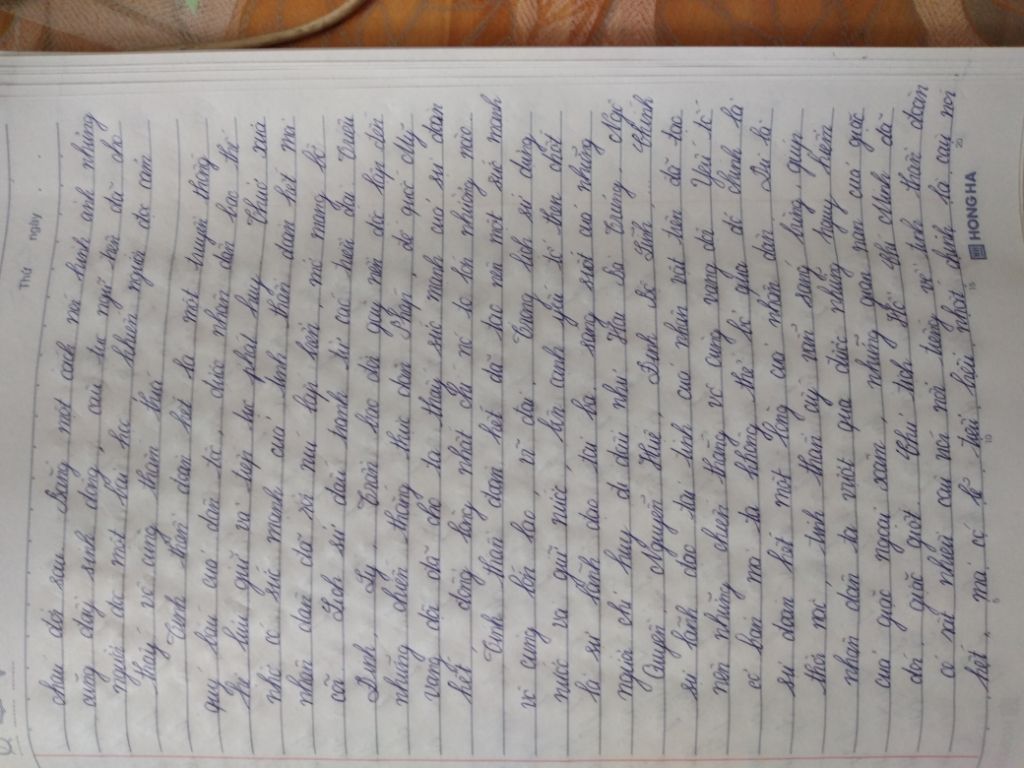 Thứ ngày
đau đó sau. Bằng một cách nói hình ảnh nhưng
cũng đầy sinh động, câu tục ngữ trên đã cho
người đọc một bài học khiến người đọc cảm
thấy vô cùng thấm thía.
Tinh thần đoàn kết là một truyền thống
quý báu của dân tộc, được nhân dân bao thế
hệ lưu giữ và tiếp tục phát huy. Thuở xưa
nhờ có sức mạnh của tinh thần đoàn kết mà
nhân dân dời núi lấp biển, mở mang bờ
cõi. Lịch sử đấu tranh từ các triều đại Triệu
Đinh, Lý, Trần bao đời gây nền độc lập tới
những chiến thắng thực dân Pháp, đế quốc Mỹ
vang dội đã cho ta thấy sức mạnh của sự đoàn
kết đồng lòng nhất chí nó to lớn nhường nào.
Tinh thần đoàn kết đã tạo nên một sức mạnh
vô cùng lớn lao, vĩ đại. Trong lịch sử dựng
nước và giữ nước, bên cạnh yếu tố then chốt
là sự lãnh đạo tài ba sáng suốt của những
người chỉ huy đi đầu như Hai Bà Trưng, Ngô
Quyền, Nguyễn Huệ, Đinh Bộ Lĩnh ... Chính
sự lãnh đạo tài tình của nhân vật trên đã tạo
nên những chiến thắng vô cùng vang dội. Yếu tố
cơ bản mà ta không thể bỏ qua đó chính là
sự đoàn kết một lòng của nhân dân. Dù bị
thời nào, tinh thần ấy vẫn sáng bừng, giúp
nhân dân ta vượt qua được những nguy hiểm
của giặc ngoại xâm, những quan nạn của giặc
đói, giặc dốt. Chủ tịch Hồ Chí Minh đã
có sự nhiên cái nền nổi tiếng về tinh thần đoàn
kết, mà có lẽ tiêu biểu nhất chính là câu nói
5 10 15 20
HONG HA